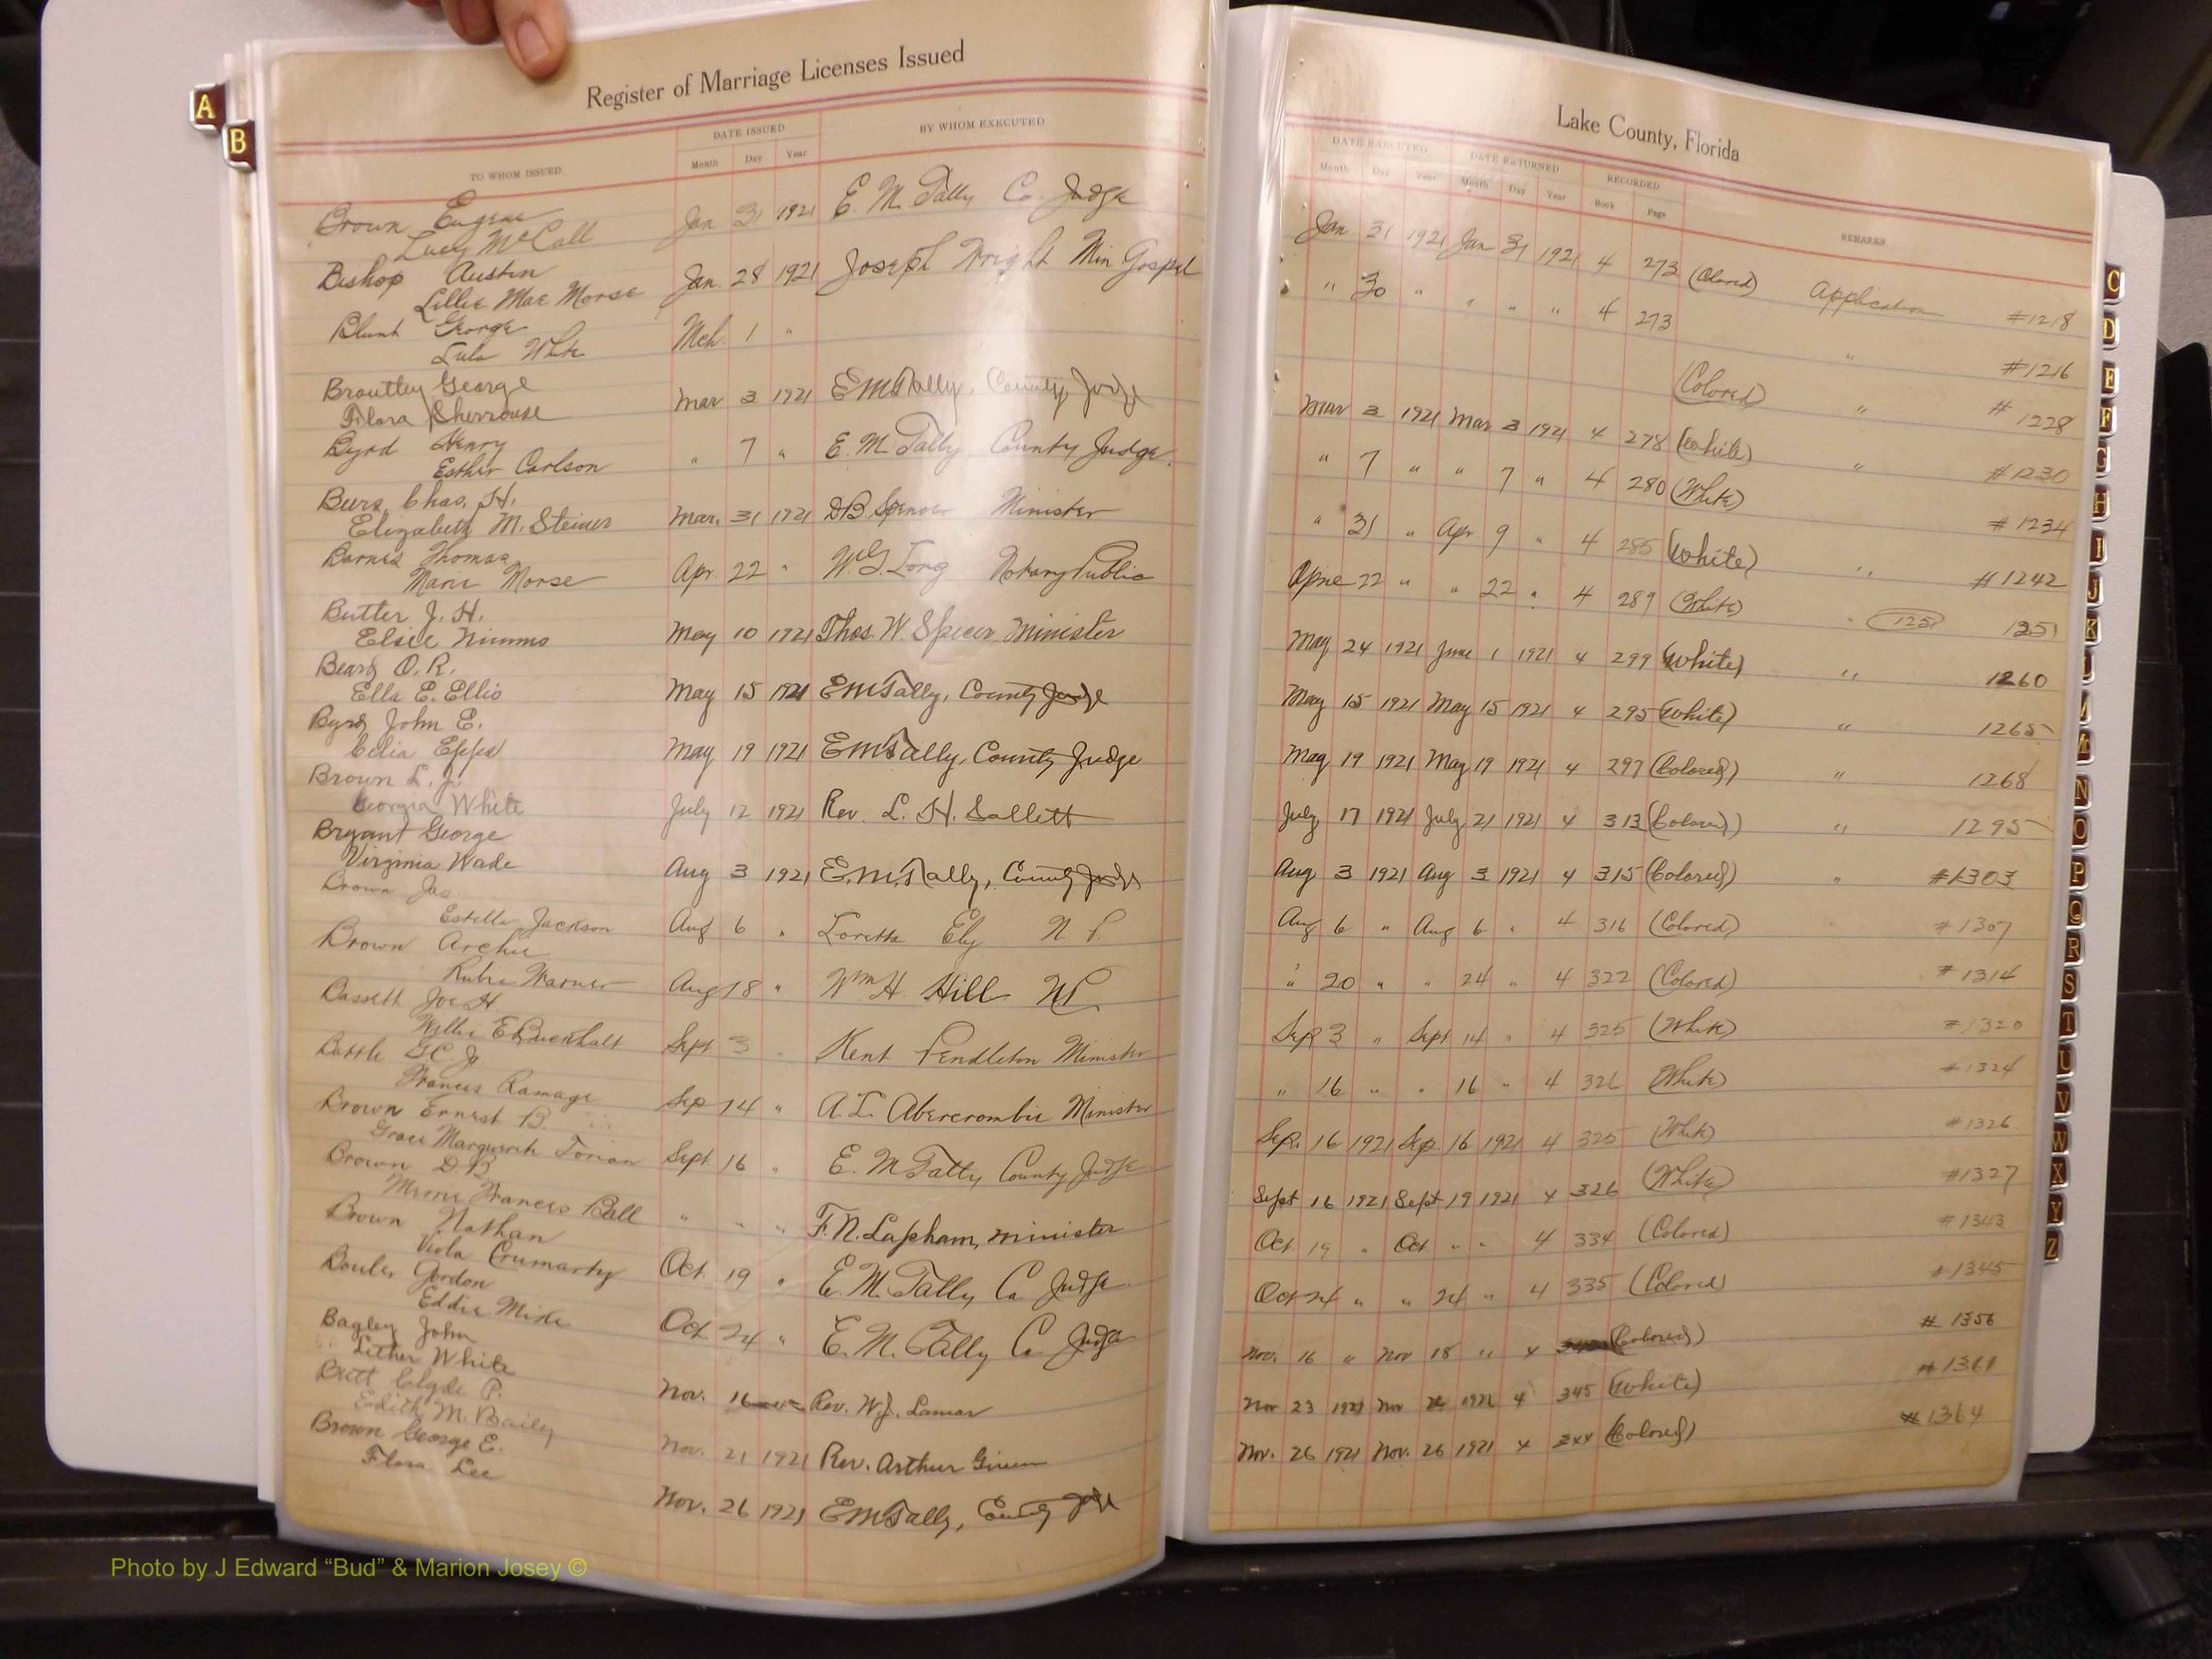 A
B
Register of Marriage Licenses Issued
TO WHOM ISSUED
DATE ISSUED
Month Day Year
BY WHOM EXECUTED
Brown Eugene
Lucy McCall Jan 31 1921 E. M. Tally Co. Judge
Bishop Austin
Lillie Mae Morse Jan. 28 1921 Joseph Wright Min Gospel
Blunt George
Lula White Mch. 1 "
Brantley George
Flora Sherrouse Mar 3 1921 E M Tally, County Judge
Byrd Henry
Esther Carlson " 7 " E. M. Tally County Judge.
Burs, Chas. H.
Elizabeth M. Steiner Mar. 31 1921 D B Spencer Minister
Barnes Thomas
Marie Morse Apr. 22 " W. G. Long Notary Public
Butler J. H.
Elsie Nimmo May 10 1921 Thos. W. Spicer, Minister
Beard O. R.
Ella E. Ellis May 15 1921 E M Tally, County Judge
Byrd John E.
Celia Epps May 19 1921 E M Tally, County Judge
Brown L. Jr
Georgia White July 12 1921 Rev. L. H. Sallett
Bryant George
Virginia Wade Aug 3 1921 E. M. Tally, County Judge
Brown Jas
Estella Jackson Aug 6 " Loretta Ely N. P.
Brown Archie
Rubie Warner Aug 18 " Wm H. Hill NP
Bassett Joe H
Willie E Buckhalt Sept 3 Kent Pendleton Minister
Battle G C. Jr.
Frances Ramage Sep 14 " A. L. Abercrombie Minister
Brown Ernest B.
Grace Marguerite Torian Sept 16 " E. M Tally County Judge
Brown D. B
Frances Ball " " " F. N. Lapham, minister
Brown Nathan
Viola Crumarty Oct 19 " E. M. Tally Co. Judge
Gordon
Eddie Mike Oct. 24 " E. M. Tally Co. Judge
Bagley John
Lither White Nov. 16 Rev. W. J. Lamar
Britt Clyde P.
Edith M. Baily Nov. 21 1921 Rev. Arthur Given
Brown George E.
Flora Lee Nov. 26 1921 E M Tally, County Judge
Lake County, Florida
DATE EXECUTED DATE RETURNED RECORDED REMARKS
Month Day Year Month Day Year Book Page
Jan. 31 1921 Jan 31 1921 4 273 (Colored) Application #1218
" 30 " " " " 4 273 " #1216
(Colored) " # 1228
Mar 3 1921 Mar 3 1921 4 278 (White) " #1230
" 7 " " 7 " 4 280 (White) #1234
" 31 " Apr. 9 " 4 285 (White) " #1242
22 " " 22 " 4 289 (White) " 1251 1251
May 24 1921 June 1 1921 4 299 (White) " 1260
May 15 1921 May 15 1921 4 295 (White) " 1265
May 19 1921 May 19 1921 4 297 (Colored) " 1268
July 17 1921 July 21 1921 4 313 (Colored) " 1295
Aug 3 1921 Aug 3 1921 4 315 (Colored) " #1303
Aug 6 " Aug 6 " 4 316 (Colored) #1307
" 20 " " 24 " 4 322 (Colored) #1314
Sep 3 " Sept 14 " 4 325 (White) #1320
" 16 " " 16 " 4 326 (White) #1324
Sep. 16 1921 Sep. 16 1921 4 325 (White) #1326
Sept 16 1921 Sept 19 1921 4 326 (White) #1327
Oct 19 " Oct " " 4 334 (Colored) #1343
Oct 24 " " 24 " 4 335 (Colored) #1345
Nov. 16 " Nov 18 " 4 (Colored) # 1356
Nov 23 1921 Nov 1921 4 345 (White) #1361
Nov. 26 1921 Nov. 26 1921 4 344 (Colored) #1364
C
D
E
F
G
H
I
J
K
M
N
O
P
Q
R
S
T
U
V
W
X
Y
Z
Photo by J Edward “Bud” & Marion Josey ©